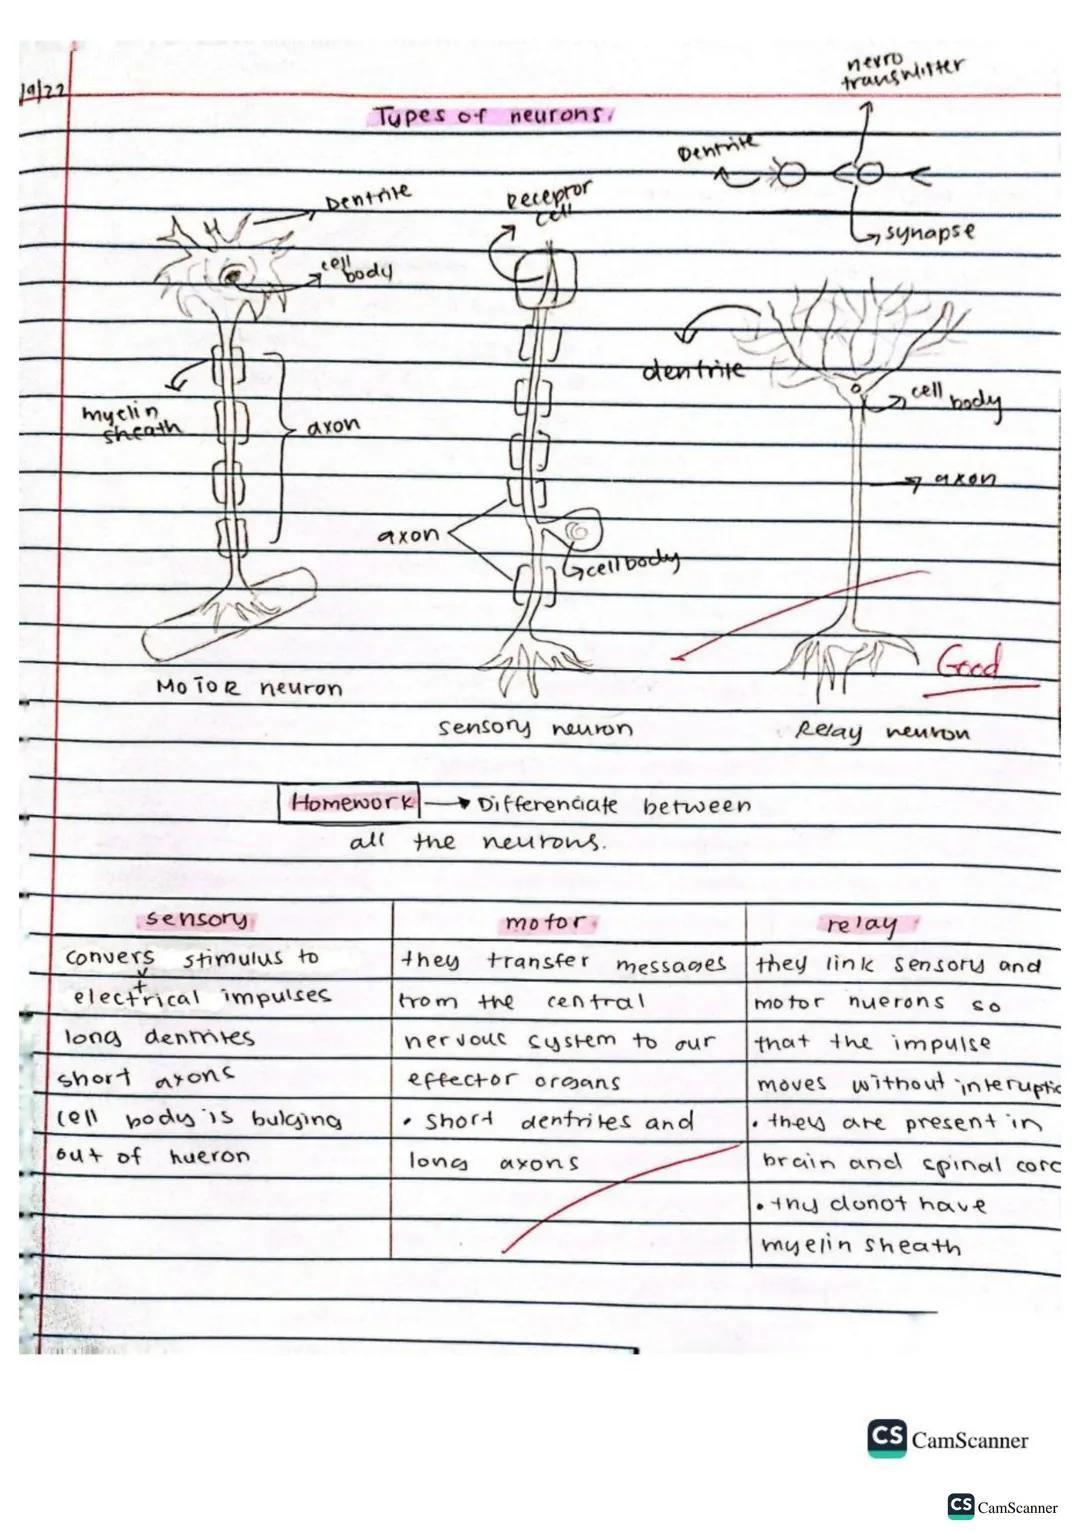 19/22
Types of neurons.
nevro
transmitter
Dentrite
synapse
Dentrite
cell
body
myelin
sheath
axon
MOTOR neuron
Receptor
cell
axon
cell body
sensory neuron
dentrite
cell body
axon
Good
Relay neuron
Homework → Differenciate between
all the neurons.
sensory
convers stimulus to
t
electrical impulses
long dentrites
short axons
cell body is bulging
out of nueron
motor
they transfer messages
from the central
nervous system to our
effector organs
• short dentrites and
long axons
relay
they link sensory and
motor nuerons so
that the impulse
moves without interuptio
• they are present in
brain and spinal cord
• thy donot have
myelin sheath
CS CamScanner
CS CamScanner